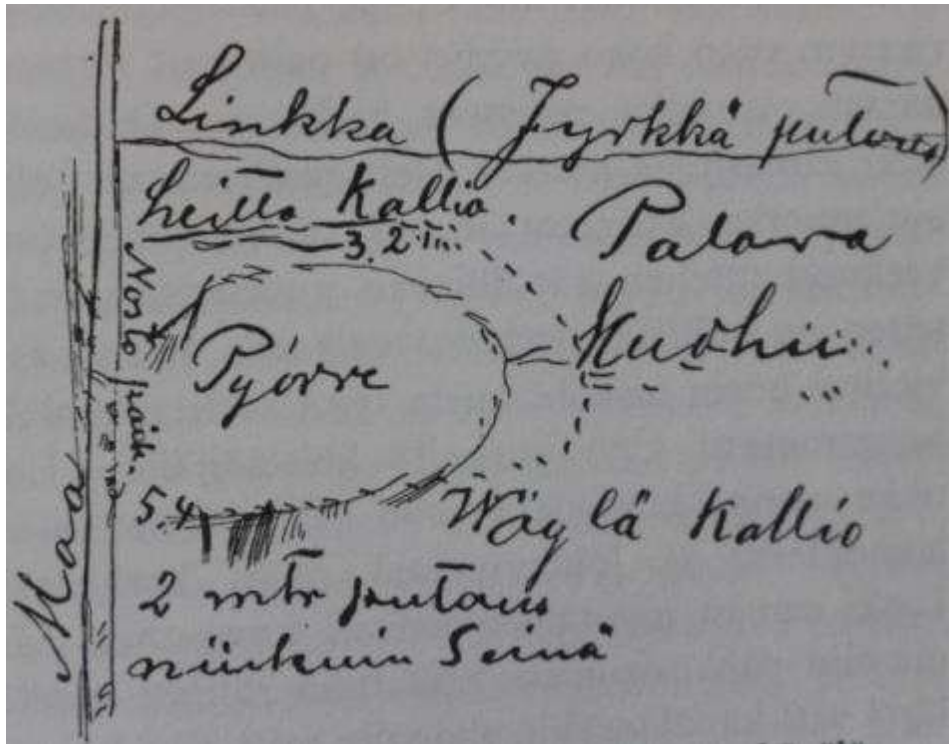 Linkka (Jyrkkä putous)
heitto Kallio
3. 2.
Palava
Kuohu
Nosto
paik.
Pyörre
5.4
Wäylä Kallio
Maa
2 mtr putous
niinkuin Seinä